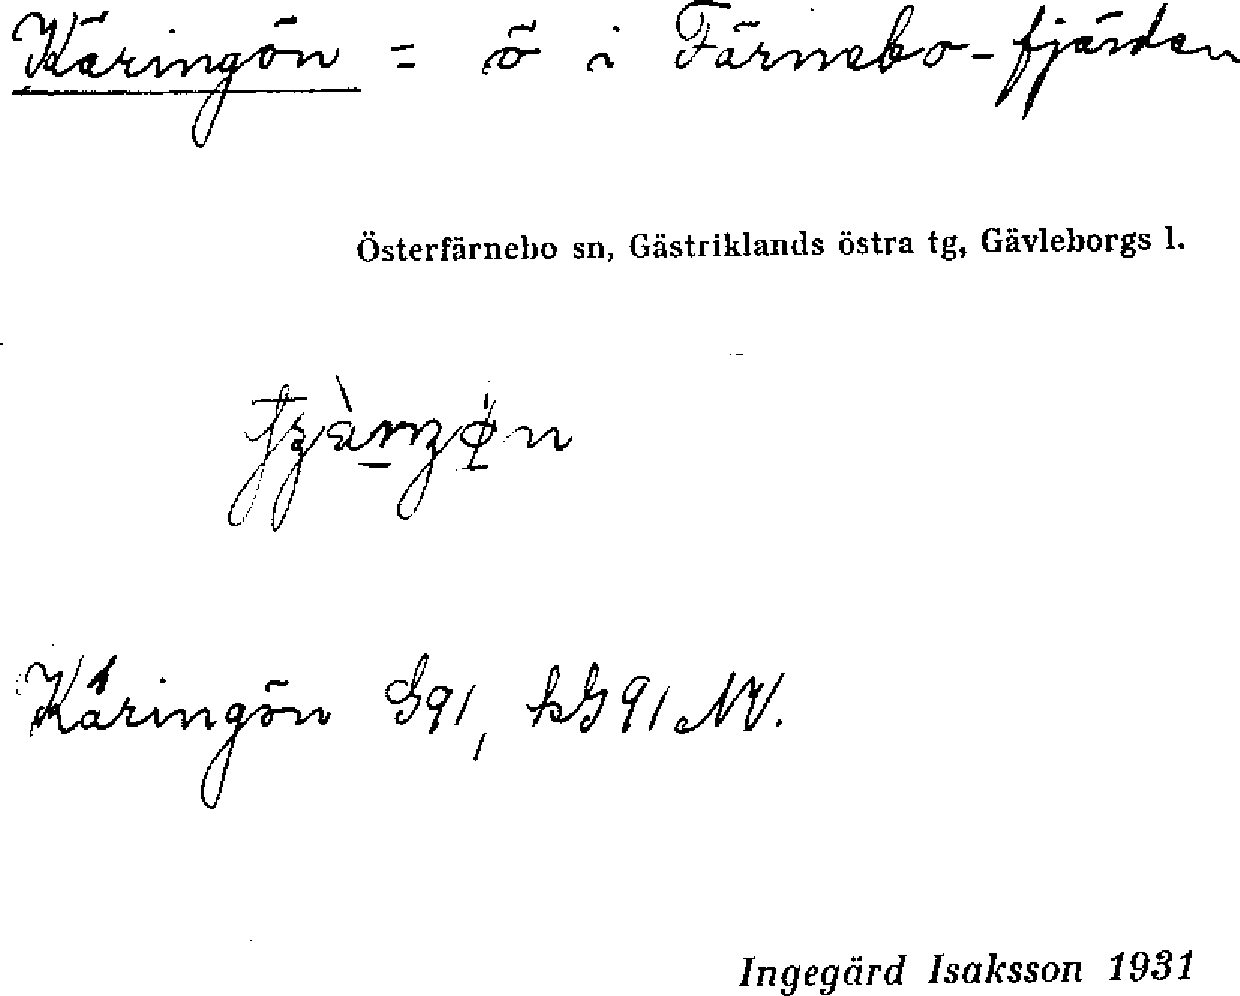 Käringön = ö i Färnebo-fjärden
Österfärnebo sn, Gästriklands östra tg, Gävleborgs l.
Käringön G91, kG91 NV.
Ingegärd Isaksson 1931